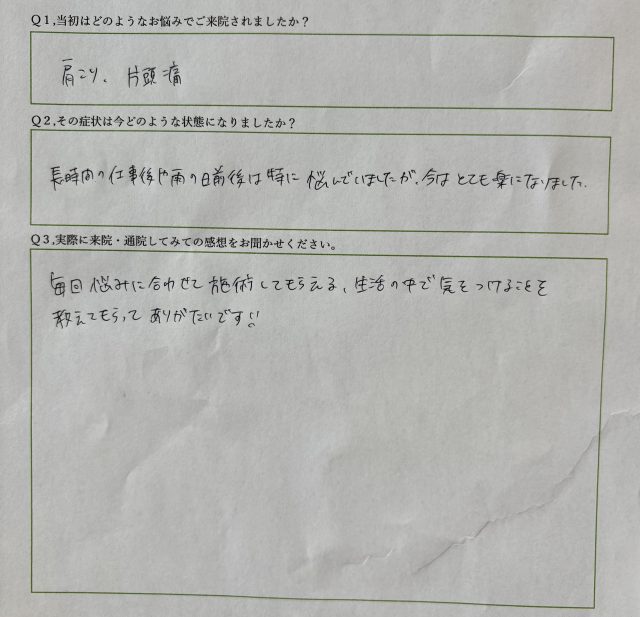 Q1,当初はどのようなお悩みでご来院されましたか？
肩こり、片頭痛
Q2,その症状は今どのような状態になりましたか？
長時間の仕事後や雨の日前後は特に悩んでいましたが、今はとても楽になりました。
Q3,実際に来院・通院してみての感想をお聞かせください。
毎回悩みに合わせて施術してもらえる、生活の中で気をつけることを
教えてもらってありがたいです!!